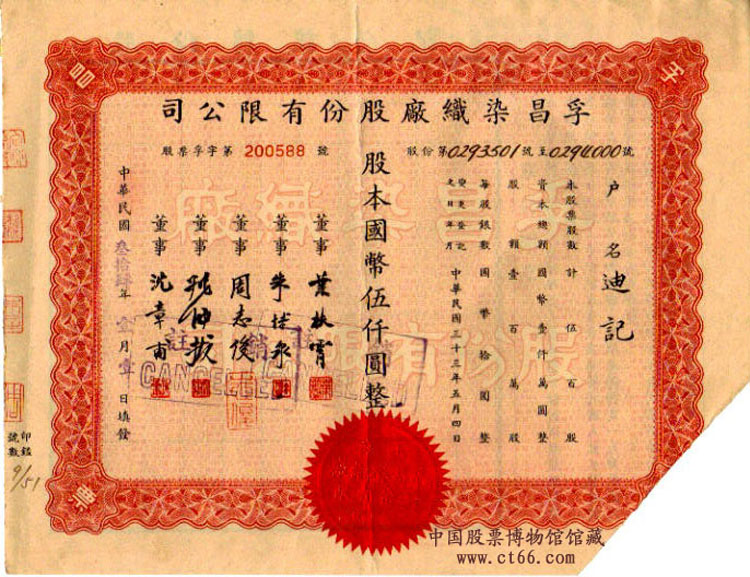 孚昌染織廠股份有限公司
股份第0293501號至0294000號
股票孚字第 200588 號
戶名 迪記
本股票股數計伍百股
資本總額國幣壹仟萬圓整
股額壹百萬股
每股銀數國幣拾圓整
變更登記之日年月 中華民國三十三年五月四日
股本國幣伍仟圓整
董事
董事 朱
董事 周志俊
董事
董事 沈章甫
中華民國叁拾肆年壹月壹日填發
註銷
CANCELLED
孚昌染織廠
股份有限公司
孚
昌
票
印鑑號數
9/51
中国股票博物馆馆藏
www.ct66.com